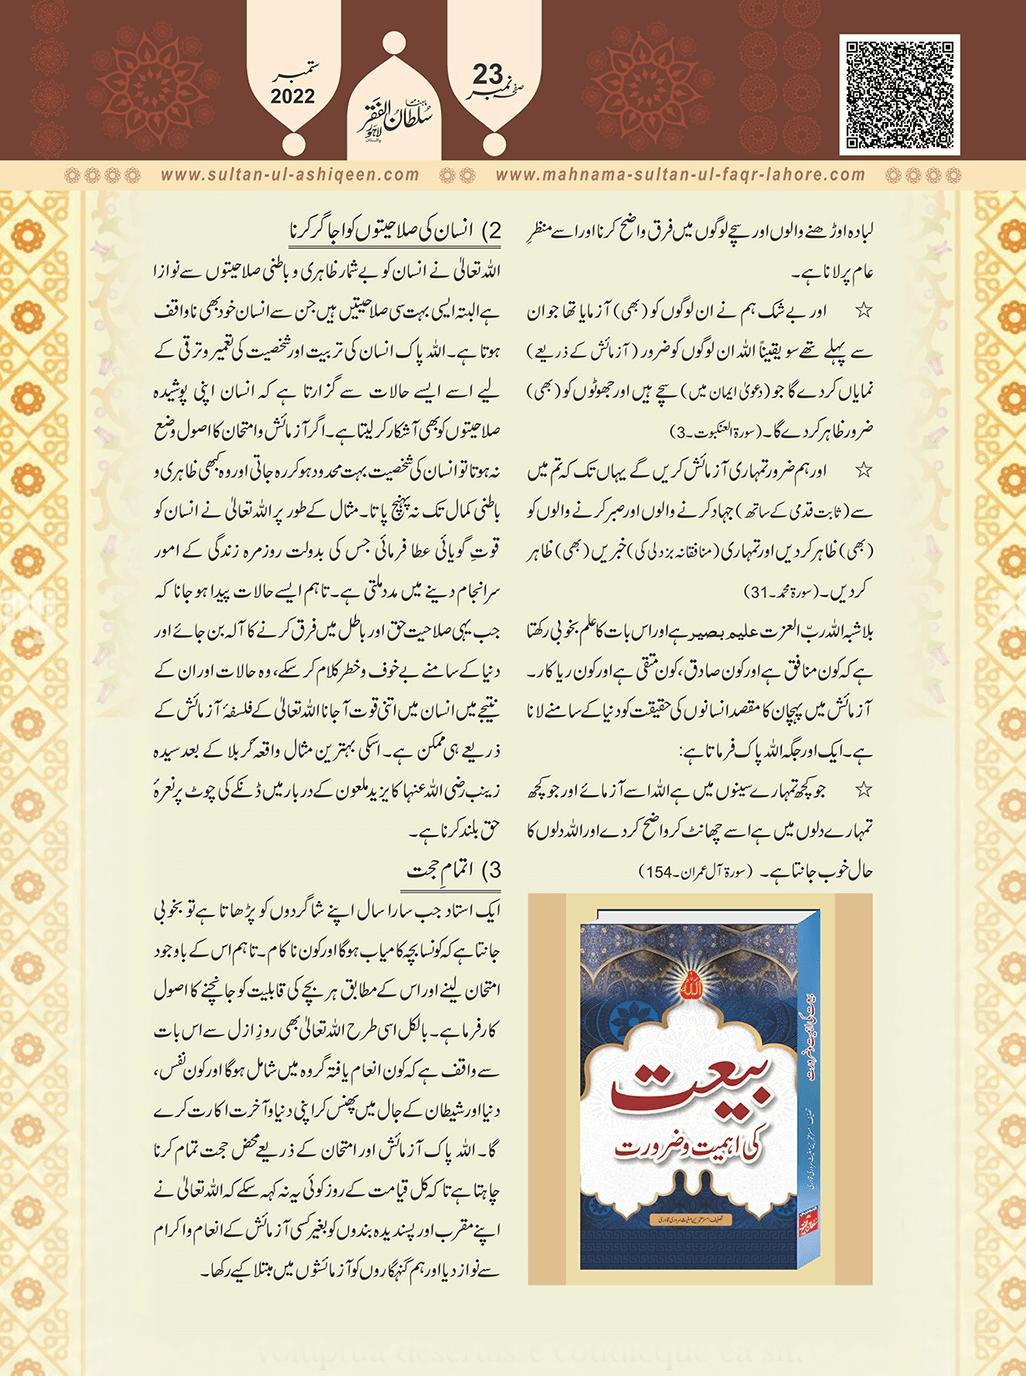 ستمبر
2022
ماہنامہ
سُلطان الفَقر
لاہور
پاکستان
23
صفحہ نمبر
www.sultan-ul-ashiqeen.com
www.mahnama-sultan-ul-faqr-lahore.com
لبادہ اوڑھنے والوں اور سچے لوگوں میں فرق واضح کرنا اور اسے منظرِ
عام پر لانا ہے۔
☆ اور بے شک ہم نے ان لوگوں کو (بھی) آزمایا تھا جو ان
سے پہلے تھے سو یقیناً اللہ ان لوگوں کو ضرور (آزمائش کے ذریعے)
نمایاں کر دے گا جو (دعویٰ ایمان میں) سچے ہیں اور جھوٹوں کو (بھی)
ضرور ظاہر کر دے گا۔ (سورۃ العنکبوت۔3)
☆ اور ہم ضرور تمہاری آزمائش کریں گے یہاں تک کہ تم میں
سے (ثابت قدمی کے ساتھ) جہاد کرنے والوں اور صبر کرنے والوں کو
(بھی) ظاہر کر دیں اور تمہاری (منافقانہ بزدلی کی) خبریں (بھی) ظاہر
کر دیں۔ (سورۃ محمد۔31)
بلاشبہ اللہ ربّ العزت علیم بصیر ہے اور اس بات کا علم بخوبی رکھتا
ہے کہ کون منافق ہے اور کون صادق، کون متقی ہے اور کون ریاکار۔
آزمائش میں پہچان کا مقصد انسانوں کی حقیقت کو دنیا کے سامنے لانا
ہے۔ ایک اور جگہ اللہ پاک فرماتا ہے:
☆ جو کچھ تمہارے سینوں میں ہے اللہ اسے آزمائے اور جو کچھ
تمہارے دلوں میں ہے اسے چھانٹ کر واضح کر دے اور اللہ دلوں کا
حال خوب جانتا ہے۔ (سورۃ آل عمران۔154)
اللہ
بیعت
کی اہمیت و ضرورت
بیعت کی اہمیت و ضرورت
2) انسان کی صلاحیتوں کو اجاگر کرنا
اللہ تعالیٰ نے انسان کو بے شمار ظاہری و باطنی صلاحیتوں سے نوازا
ہے البتہ ایسی بہت سی صلاحیتیں ہیں جن سے انسان خود بھی ناواقف
ہوتا ہے۔ اللہ پاک انسان کی تربیت اور شخصیت کی تعمیر و ترقی کے
لیے اسے ایسے حالات سے گزارتا ہے کہ انسان اپنی پوشیدہ
صلاحیتوں کو بھی آشکار کر لیتا ہے۔ اگر آزمائش و امتحان کا اصول وضع
نہ ہوتا تو انسان کی شخصیت بہت محدود ہو کر رہ جاتی اور وہ کبھی ظاہری و
باطنی کمال تک نہ پہنچ پاتا۔ مثال کے طور پر اللہ تعالیٰ نے انسان کو
قوتِ گویائی عطا فرمائی جس کی بدولت روزمرہ زندگی کے امور
سرانجام دینے میں مدد ملتی ہے۔ تاہم ایسے حالات پیدا ہو جانا کہ
جب یہی صلاحیت حق اور باطل میں فرق کرنے کا آلہ بن جائے اور
دنیا کے سامنے بے خوف و خطر کلام کر سکے، وہ حالات اور ان کے
نتیجے میں انسان میں اتنی قوت آ جانا اللہ تعالیٰ کے فلسفۂ آزمائش کے
ذریعے ہی ممکن ہے۔ اسکی بہترین مثال واقعہ کربلا کے بعد سیدہ
زینب رضی اللہ عنہا کا یزید ملعون کے دربار میں ڈنکے کی چوٹ پر نعرۂ
حق بلند کرنا ہے۔
3) اتمامِ حجت
ایک استاد جب سارا سال اپنے شاگردوں کو پڑھاتا ہے تو بخوبی
جانتا ہے کہ کونسا بچہ کامیاب ہوگا اور کون ناکام۔ تاہم اس کے باوجود
امتحان لینے اور اس کے مطابق ہر بچے کی قابلیت کو جانچنے کا اصول
کارفرما ہے۔ بالکل اسی طرح اللہ تعالیٰ بھی روزِ ازل سے اس بات
سے واقف ہے کہ کون انعام یافتہ گروہ میں شامل ہوگا اور کون نفس،
دنیا اور شیطان کے جال میں پھنس کر اپنی دنیا و آخرت اکارت کرے
گا۔ اللہ پاک آزمائش اور امتحان کے ذریعے محض حجت تمام کرنا
چاہتا ہے تاکہ کل قیامت کے روز کوئی یہ نہ کہہ سکے کہ اللہ تعالیٰ نے
اپنے مقرب اور پسندیدہ بندوں کو بغیر کسی آزمائش کے انعام و اکرام
سے نواز دیا اور ہم گنہگاروں کو آزمائشوں میں مبتلا کیے رکھا۔